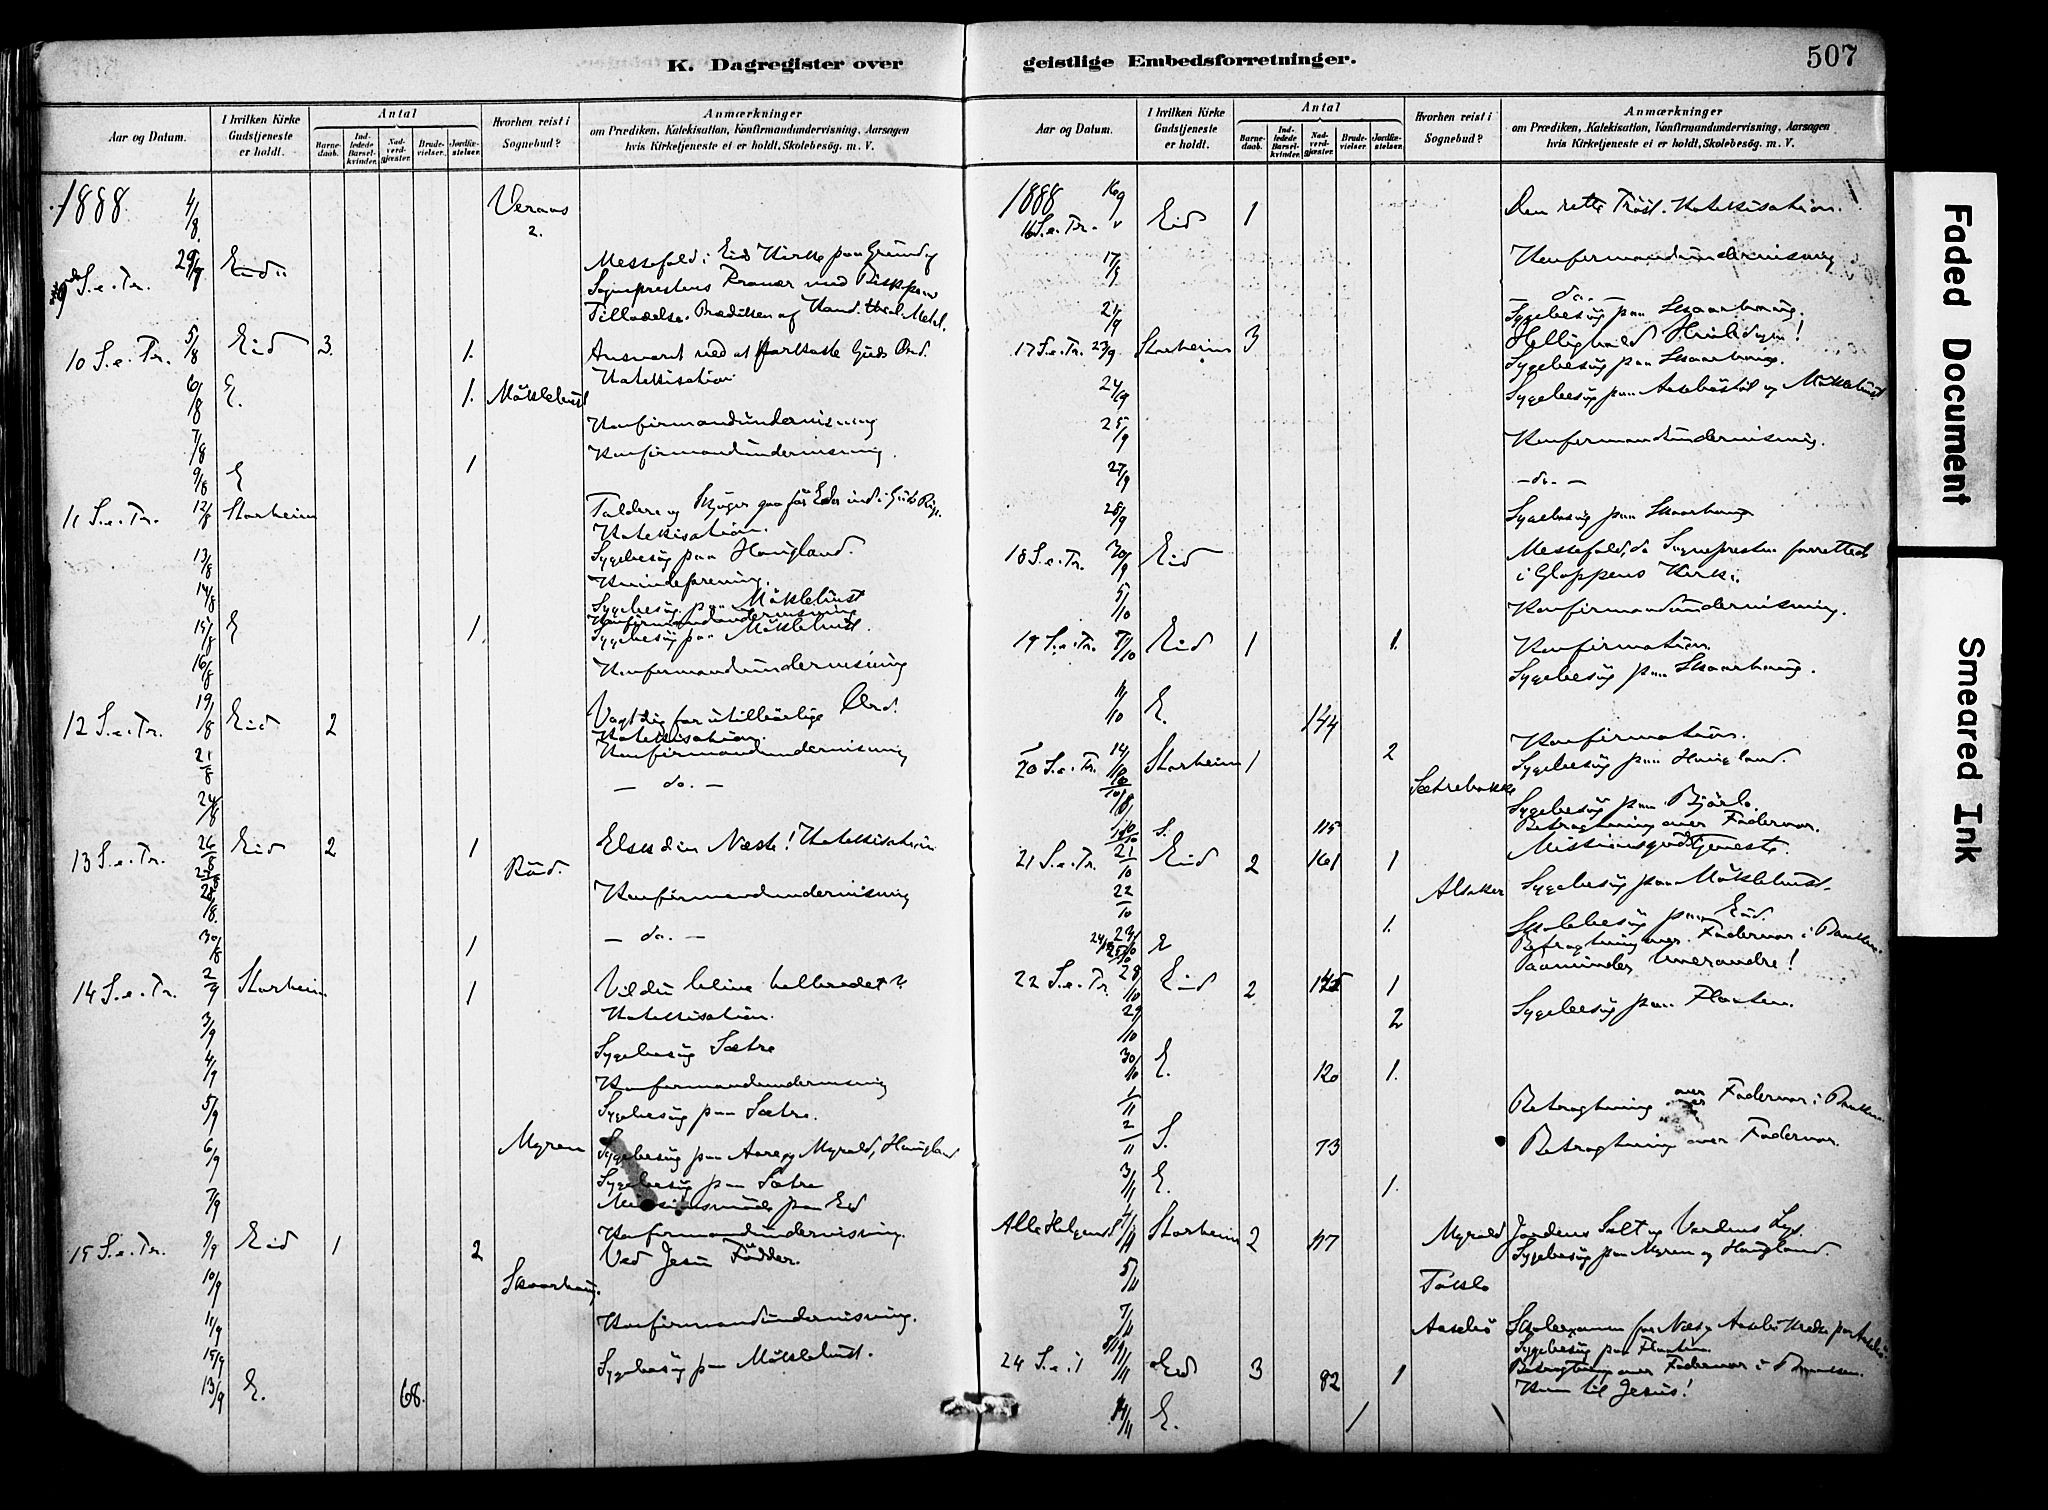 K. Dagregister over geistlige Embedsforretninger. 507
Aar og Datum. I hvilken Kirke Gudstjeneste er holdt. Antal Barnedaab. Indledede Barselkvinder. Nadverdgjæster. Brudevielser. Jordfæstelser. Hvorhen reist i Sognebud? Anmærkninger om Prædiken, Katekisation, Konfirmandundervisning, Aarsagen hvis Kirketjeneste ei er holdt, Skolebesög. m. V.
1888 4/8 Veraas 2.
9 S.e.Tr. 29/7 Eid Messefald i Eid Kirke paa Grund af
Sogneprestens med Biskopens
Tilladelse. Prædiken af Kand. theol.
10 S.e.Tr. 5/8 Eid 3. 1. Ansvaret ved at forkaste Guds Ord.
Katekisation
6/8 E. 1. Möklebust
Konfirmandundervisning
7/8 Konfirmandundervisning.
9/8 E 1
11 S.e.Tr. 12/8 Starheim Toldere og Skjöger gaa för Eder ind i Guds Rige.
Katekisation.
13/8 Sygebesög paa Haugland.
14/8 Kvindeforening.
Sygebesög paa Möklebust
Konfirmandundervisning
15/8 E 1. Sygebesög paa Möklebust.
16/8 Konfirmandundervisning
12 S.e.Tr. 19/8 Eid 2 Vogt dig for utilbörlige Ord.
Katekisation.
21/8 Konfirmandundervisning
24/8 — do. —
13 S.e.Tr. 26/8 Eid 2 1 Elsk din Næste! Katekisation
Röd.
28/8 Konfirmandundervisning
30/8 1 — do. —
14 S.e.Tr. 2/9 Starheim 1 Vil du blive helbredet?
Katekisation.
3/9 Sygebesög Sætre
4/9 Konfirmandundervisning
5/9 Sygebesög paa Sætre.
6/9 Myren Sygebesög paa Myrold, Haugland
Sygebesög paa Sætre
7/9 Missionsmöde paa Eid
Konfirmandundervisning.
15 S.e.Tr. 9/9 Eid 1 2 Ved Jesu Födder.
10/9 Skaarhaug.
11/9 Konfirmandundervisning.
Sygebesög paa Möklebust.
13/9 E. 68.
Aar og Datum. I hvilken Kirke Gudstjeneste er holdt. Antal Barnedaab. Indledede Barselkvinder. Nadverdgjæster. Brudevielser. Jordfæstelser. Hvorhen reist i Sognebud? Anmærkninger om Prædiken, Katekisation, Konfirmandundervisning, Aarsagen hvis Kirketjeneste ei er holdt, Skolebesög. m. V.
1888 16/9 16 S.e.Tr. Eid 1 Den rette Tröst. Katekisation.
17/9 Konfirmandundervisning
21/9 — do. —
Sygebesög paa Skaarhaug.
17 S.e.Tr. 23/9 Starheim 3 Hellighold Hviledagen!
Sygebesög paa Skaarhaug.
24/9 Sygebesög paa Aaseböstöl og Möklebust
25/9 Konfirmandundervisning.
27/9 — do. —
28/9 Sygebesög paa Skaarhaug
18 S.e.Tr. 30/9 Eid Messefald, da Sognepresten forrettede
i Gloppens Kirke.
5/10 Konfirmandundervisning.
19 S.e.Tr. 7/10 Eid 1 1. Konfirmation.
Sygebesög paa Skaarhaug.
11/10 E. 144
20 S.e.Tr. 14/10 Starheim 1 2 Konfirmation.
Sygebesög paa Haugland.
Sætrebakke
Sygebesög paa Björlo.
S. 115 Betragtning over Fadervor.
21 S.e.Tr. 21/10 Eid 2 161 1 Missionsgudstjeneste.
22/10 Alsaker Sygebesög paa Möklebust.
23/10 1. Skolebesög paa Eid.
24/10 25/10 E Betragtning over Fadervor i Banken.
22 S.e.Tr. 28/10 Eid 2 1 Paaminder hverandre!
29/10 2 Sygebesög paa Floten.
30/10 E. 120 1.
1/11 Betragtning over Fadervor i Banken.
2/11 S. 73 Betragtning over Fadervor.
3/11 E. 1.
Alle Helgens 4/11 Starheim 2 117 Myrold Jordens Salt og Verdens Lys.
Sygebesög paa Myren og Haugland.
5/11
7/11 Aasebö
Sygebesög paa Floten.
24 S.e.T 11/11 Eid 3 82 1 Betragtning over Fadervor i Banken.
Kom til Jesus!
E. 1
Faded Document
Smeared Ink